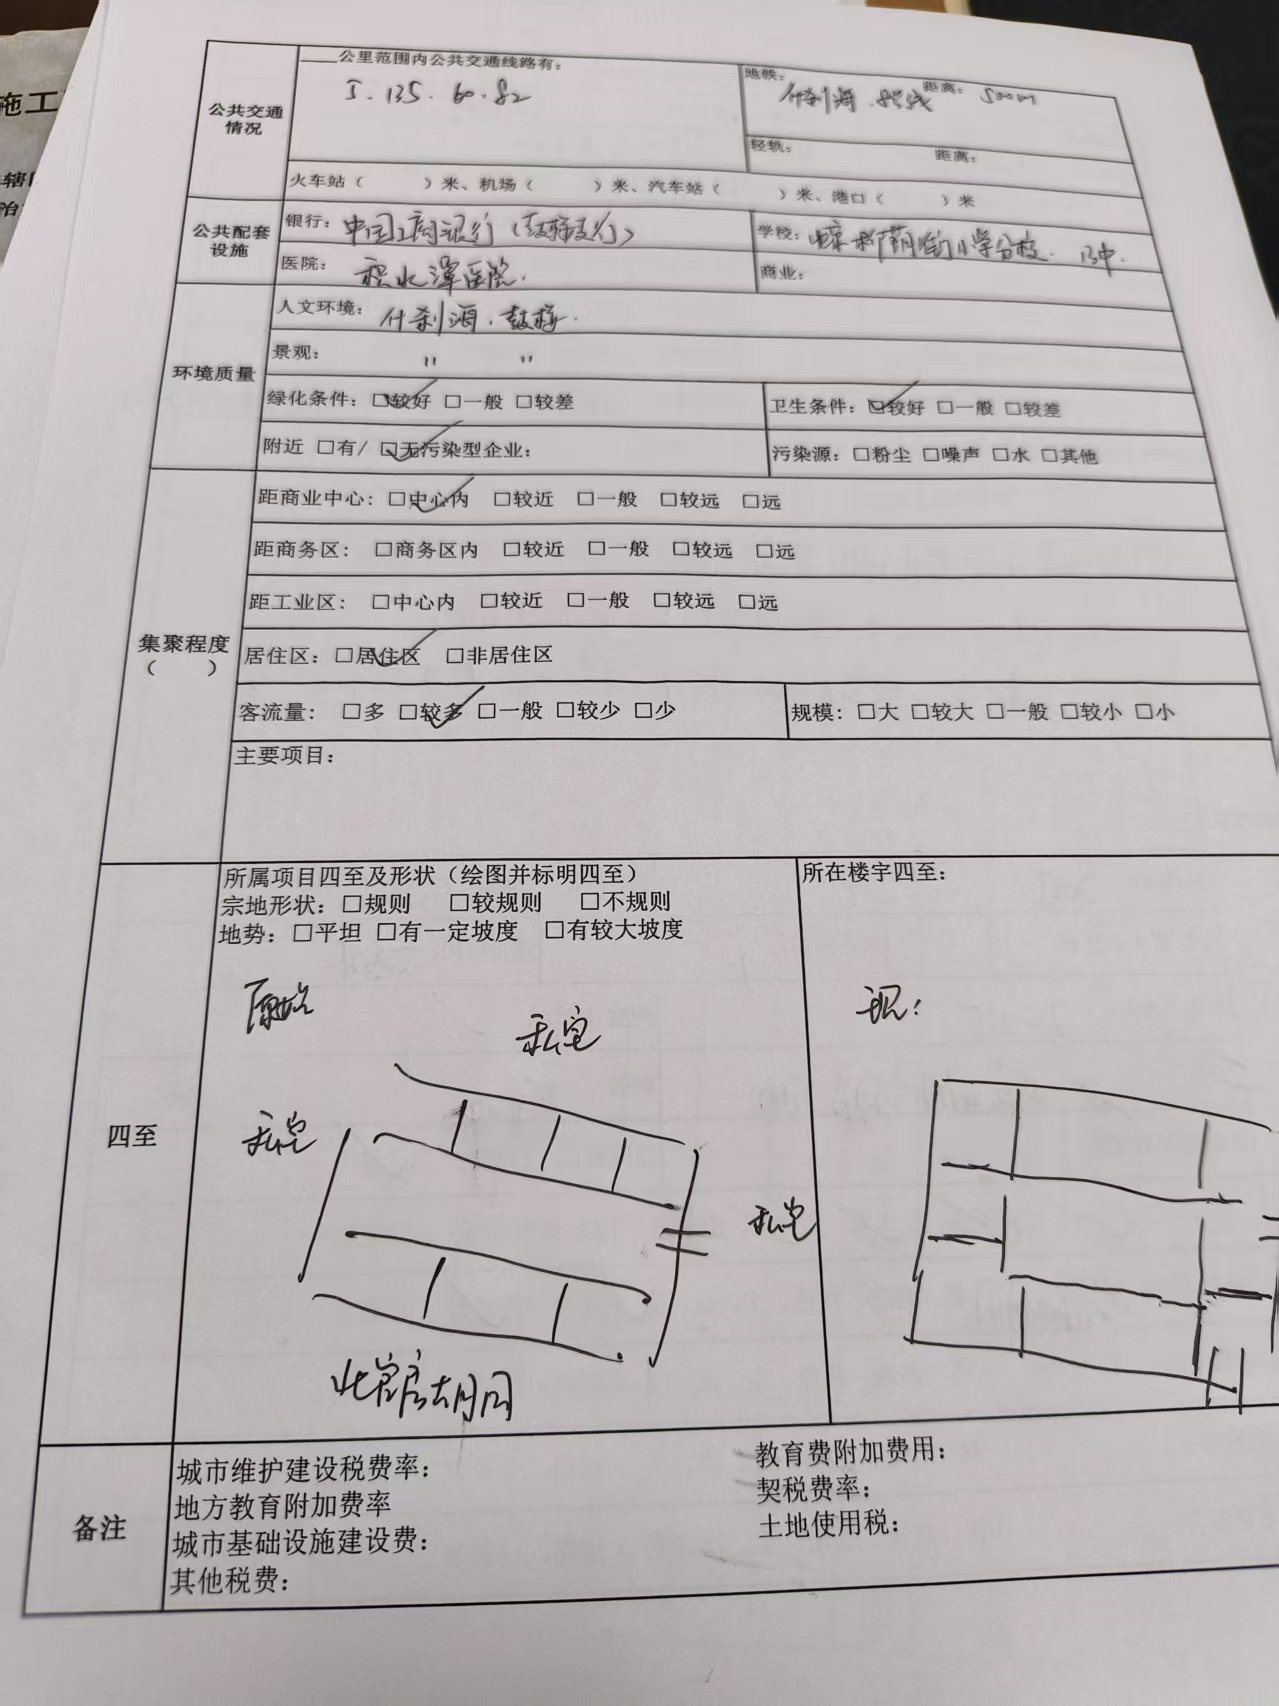 施工
辖
治
公共交通
情况
____公里范围内公共交通线路有：
5. 135. 60. 82
地铁：
什刹海. 8号线
距离：
500m
轻轨：
距离：
火车站（　　）米、机场（　　）米、汽车站（　　）米、港口（　　）米
公共配套
设施
银行：中国工商银行（鼓楼支行）
学校：柳荫街小学分校. 13中.
医院：积水潭医院.
商业：
环境质量
人文环境：什刹海. 鼓楼.
景观： 〃 〃
绿化条件：☑较好 □一般 □较差
卫生条件：☑较好 □一般 □较差
附近 □有/ ☑无污染型企业：
污染源：□粉尘 □噪声 □水 □其他
集聚程度
（　　）
距商业中心：☑中心内 □较近 □一般 □较远 □远
距商务区： □商务区内 □较近 □一般 □较远 □远
距工业区： □中心内 □较近 □一般 □较远 □远
居住区：☑居住区 □非居住区
客流量： □多 ☑较多 □一般 □较少 □少
规模：□大 □较大 □一般 □较小 □小
主要项目：
四至
所属项目四至及形状（绘图并标明四至）
宗地形状：□规则 □较规则 □不规则
地势：□平坦 □有一定坡度 □有较大坡度
所在楼宇四至：
原始
现：
私宅
私宅
私宅
北官房胡同
备注
城市维护建设税费率：
教育费附加费用：
地方教育附加费率
契税费率：
城市基础设施建设费：
土地使用税：
其他税费：